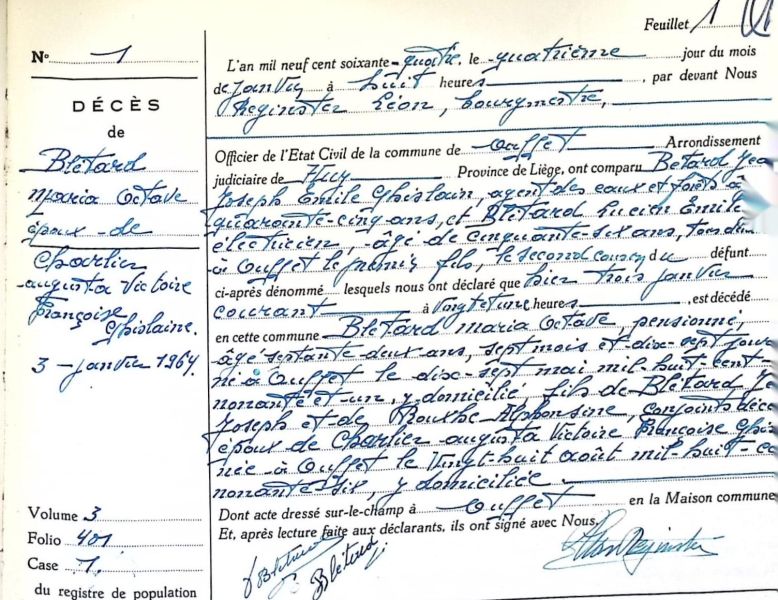 Feuillet 1
N° 1
DÉCÈS
de
Blétard
Maria Octave
époux de
Charlier
Augusta Victoire
Françoise
Ghislaine.
3 - janvier 1964.
Volume 3
Folio 401
Case 1.
du registre de population
L'an mil neuf cent soixante-quatre, le quatrième jour du mois
de janvier à huit heures, par devant Nous
Reginster Léon, bourgmestre,
Officier de l'Etat Civil de la commune de Ouffet Arrondissement
judiciaire de Huy Province de Liège, ont comparu Blétard
Joseph Emile Ghislain, agent des eaux et forêts, âgé
quarante-cinq ans, et Blétard Lucien Emile
électricien, âgé de cinquante-six ans,
à Ouffet le premier fils, le second cousin du défunt
ci-après dénommé lesquels nous ont déclaré que hier trois janvier
courant à vingt et une heures, est décédé
en cette commune Blétard Maria Octave, pensionné,
âgé septante-deux ans, sept mois et dix-sept jours
né à Ouffet le dix-sept mai mil huit cent
nonante et un, y domicilié, fils de Blétard
Joseph et de Rouxhe Alphonsine, conjoints
époux de Charlier Augusta Victoire Françoise
née à Ouffet le vingt-huit août mil huit
nonante six, y domiciliée.
Dont acte dressé sur-le-champ à Ouffet en la Maison commune
Et, après lecture faite aux déclarants, ils ont signé avec Nous.
Blétard